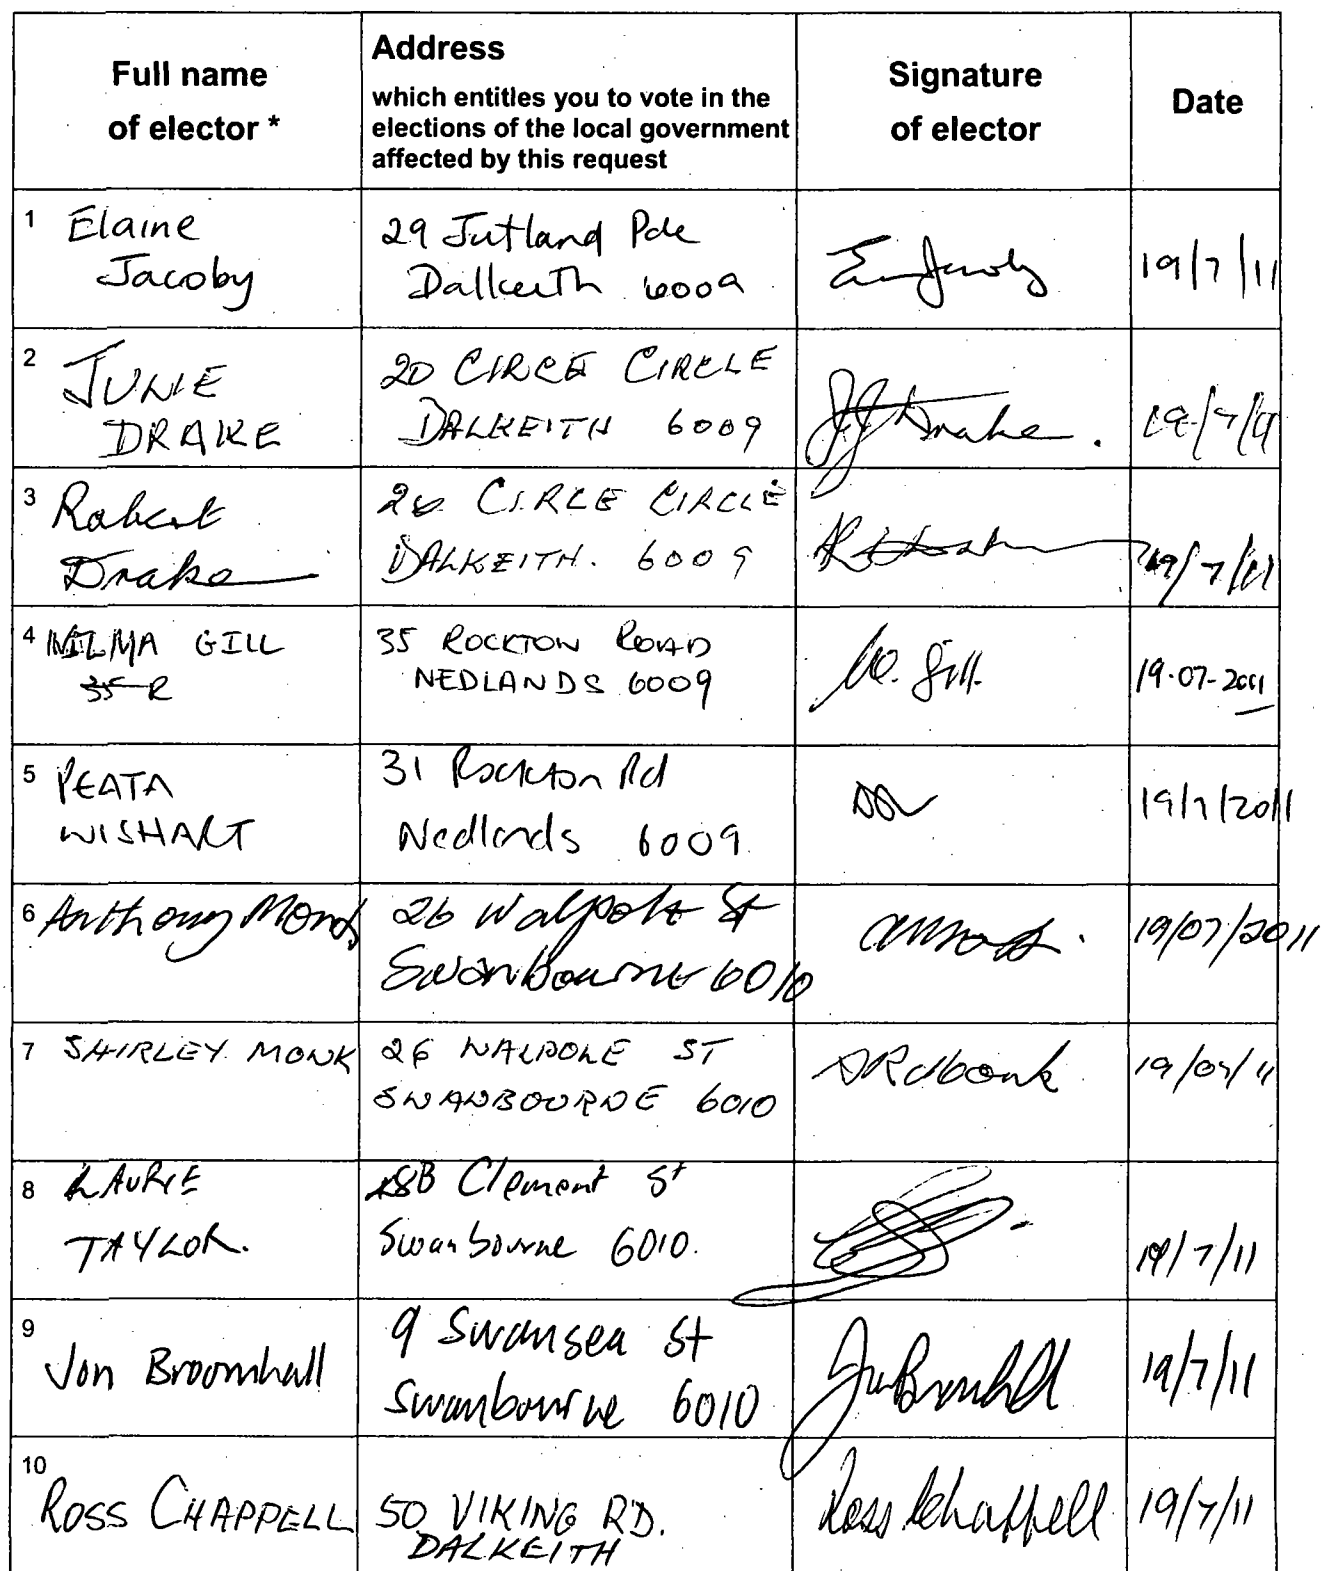 Full name
of elector *
Address
which entitles you to vote in the
elections of the local government
affected by this request
Signature
of elector
Date
1 Elaine
Jacoby
29 Jutland Pde
Dalkeith 6009
19/7/11
2 JUNE
DRAKE
20 CIRCE CIRCLE
DALKEITH 6009
J J Drake.
19/7/11
3 Robert
Drake
CIRCE CIRCLE
DALKEITH. 6009
19/7/11
4 WILMA GILL
35 R
35 ROCKTON ROAD
NEDLANDS 6009
W. Gill.
19-07-2011
5 PEATA
WISHART
31 Rockton Rd
Nedlands 6009
19/7/2011
6 Anthony Monk
26 Walpole St
Swanbourne 6010
19/07/2011
7 SHIRLEY MONK
26 WALPOLE ST
SWANBOURNE 6010
19/07/11
8 LAURIE
TAYLOR.
Clement St
Swanbourne 6010.
19/7/11
9
Jon Broomhall
9 Swansea St
Swanbourne 6010
19/7/11
10
ROSS CHAPPELL
50 VIKING RD.
DALKEITH
Ross Chappell
19/7/11